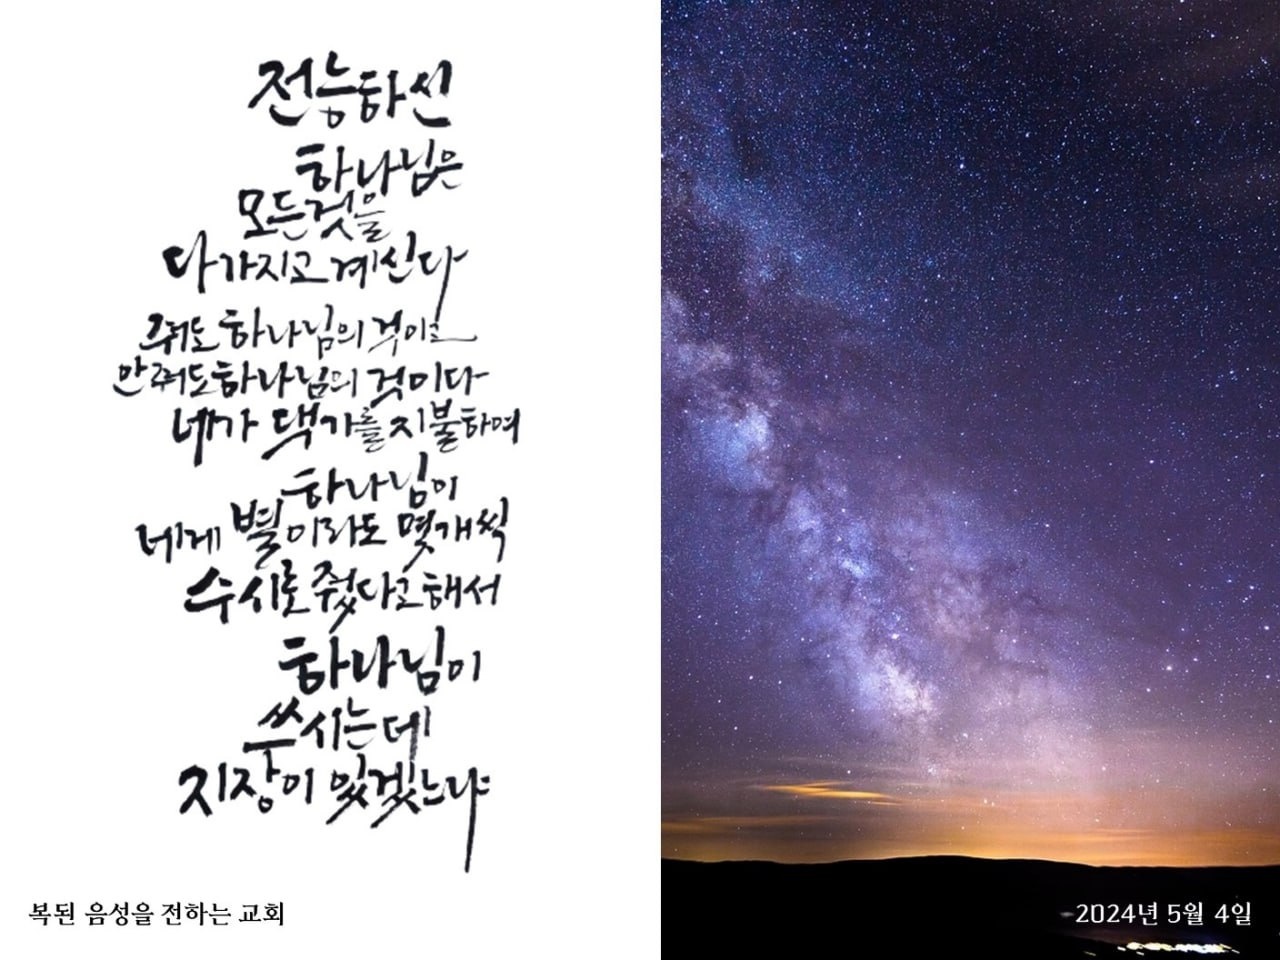 전능하신
하나님은
모든것을
다가지고계신다
줘도 하나님의 것이고
안줘도 하나님의 것이다
네가 댓가를 지불하여
하나님이
네게 별이라도 몇개씩
수시로 줬다고 해서
하나님이
쓰시는데
지장이 있겠느냐
복된 음성을 전하는 교회
2024년 5월 4일